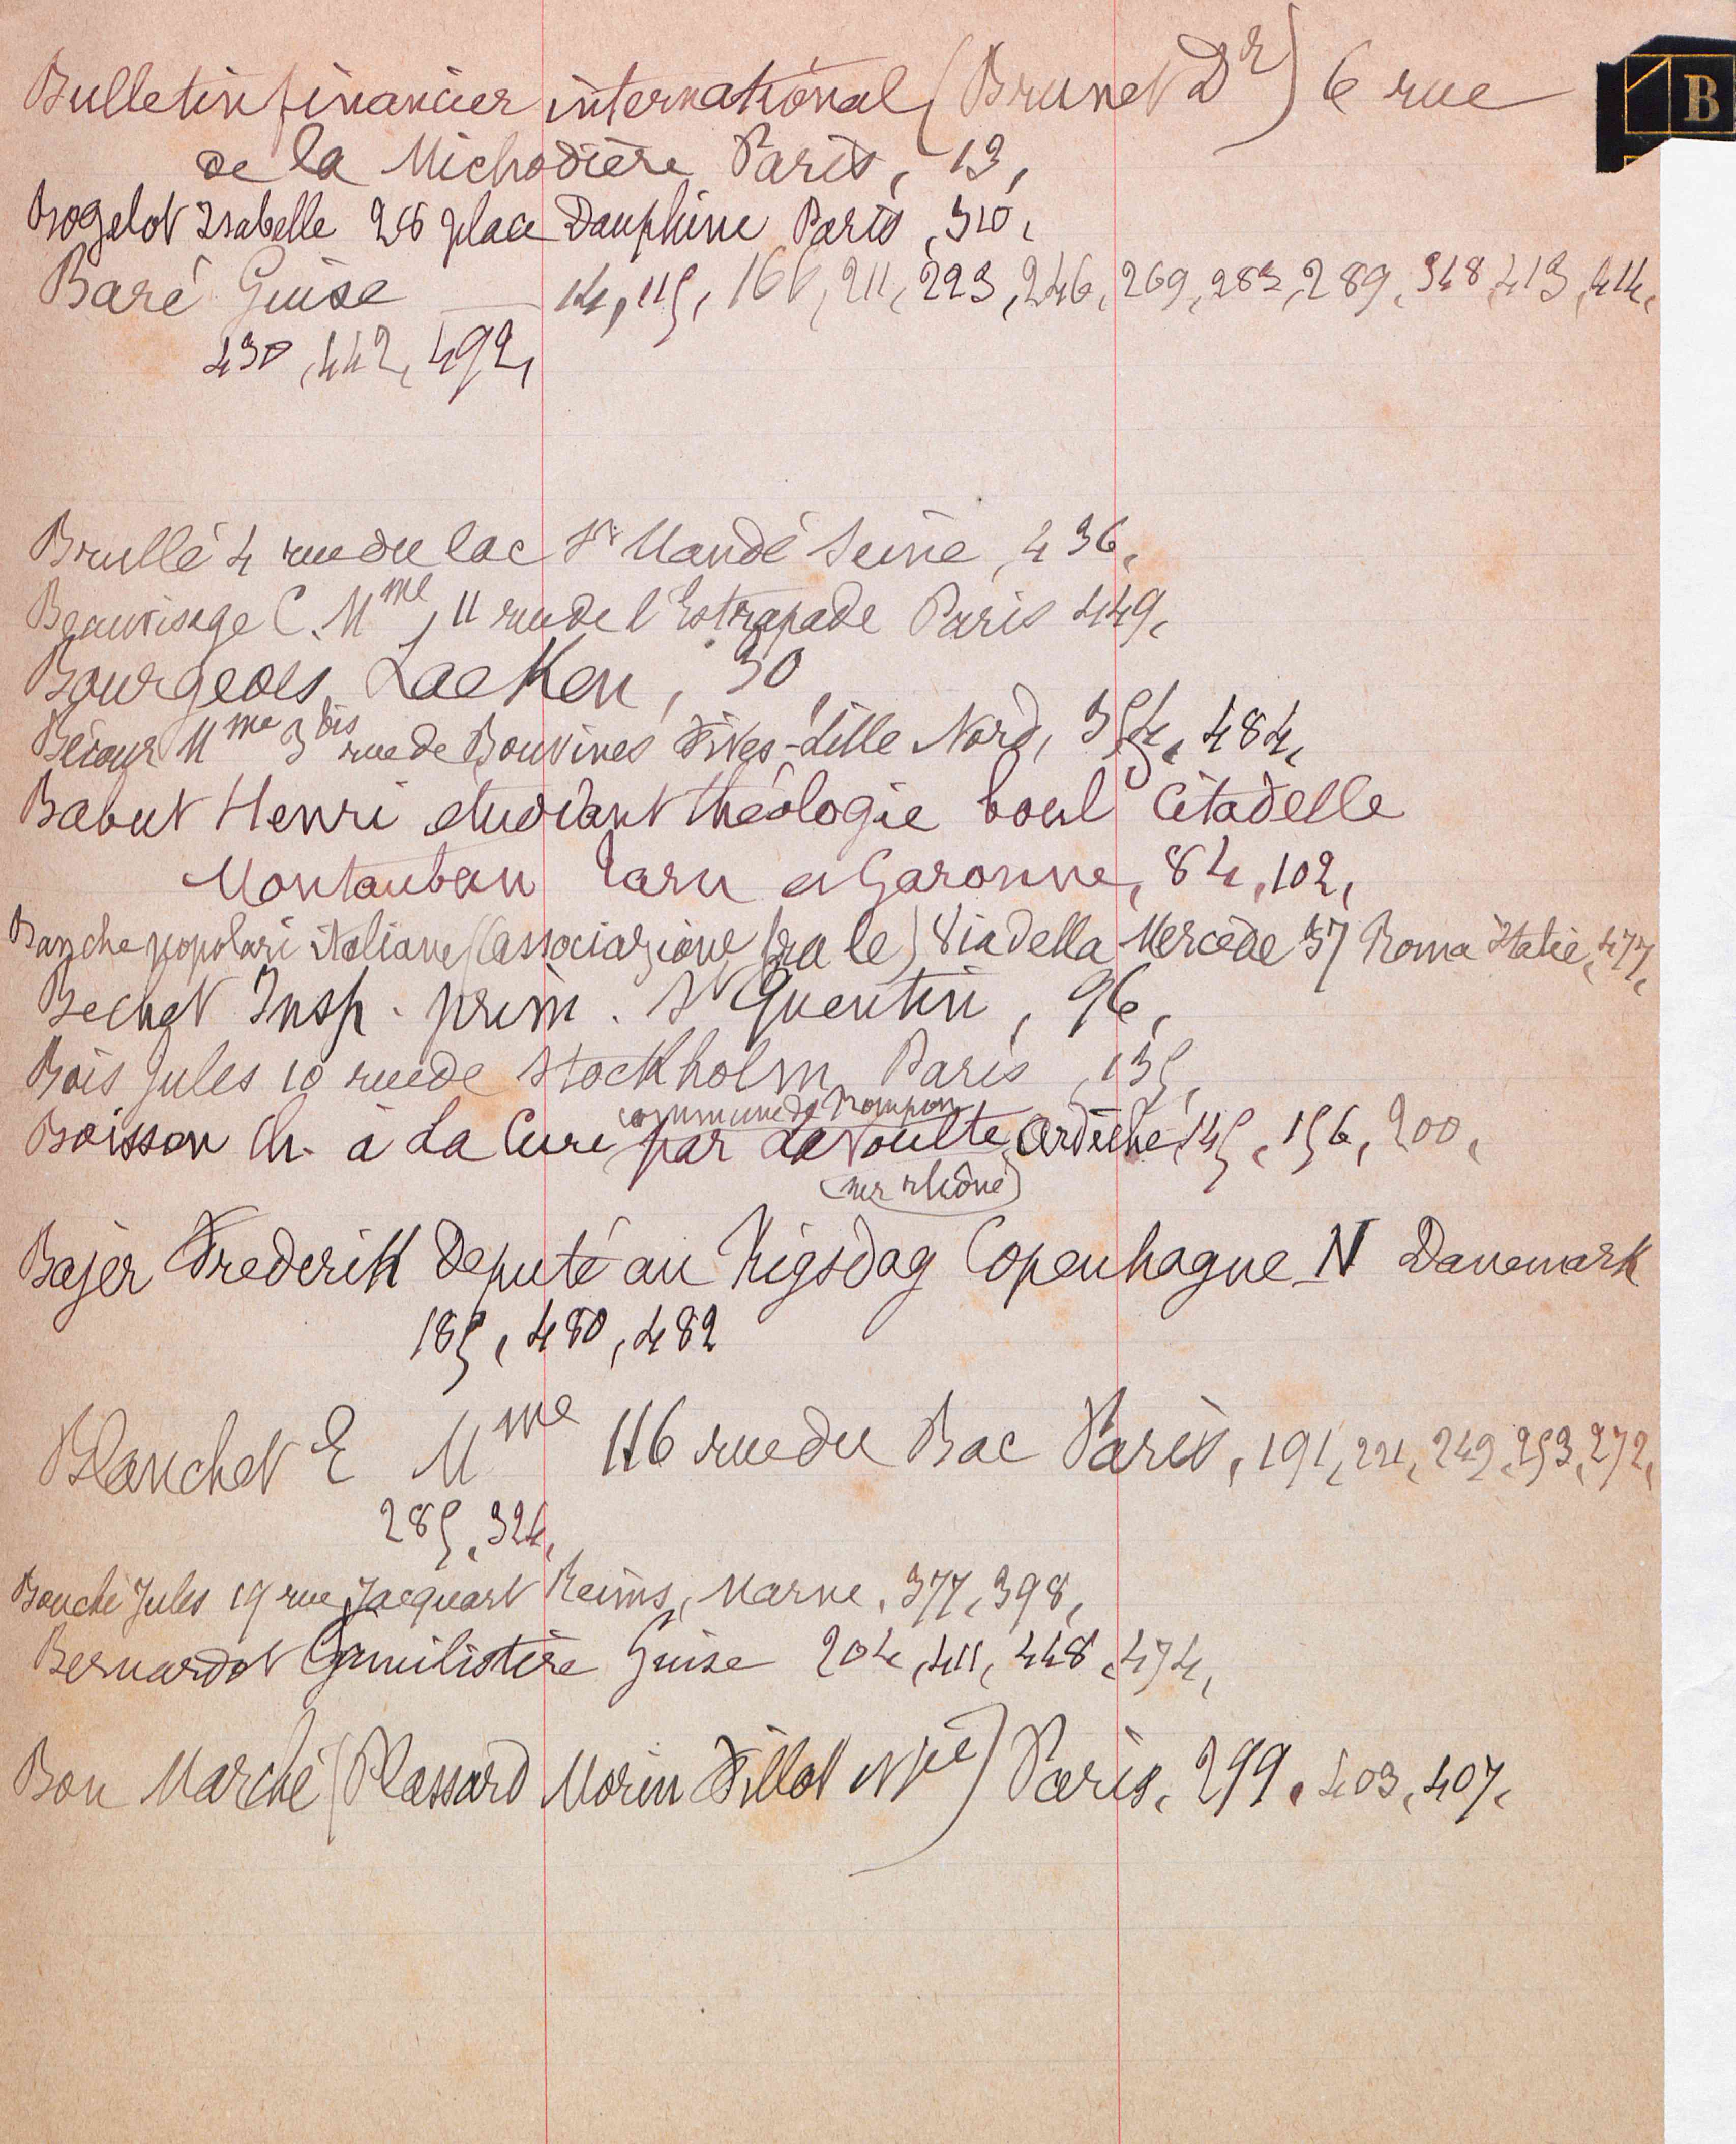 B
Bulletin financier international (Brunet Dr) 6 rue
de la Michodière Paris, 13,
Bogelot Isabelle 28 place Dauphine Paris, 310,
Baré Guise — 14, 115, 166, 211, 223, 246, 269, 283, 289, 348, 413, 414,
430, 442, 492,
Brullé 4 rue du lac St Mandé Seine, 436,
Beauvisage C. Mme, 11 rue de l'Estrapade Paris 449,
Bourgeois, Laeken, 30,
Bécour Mme 3 bis rue de Bouvines Fives-Lille Nord, 354, 484,
Babut Henri etudiant théologie boul Citadelle
Montauban Tarn et Garonne, 84, 102,
Banche popolari italiane (associazione fra le) Via della Mercede 37 Roma Italie, 477,
Bechet Insp. prim. St Quentin, 96,
Bois Jules 10 rue de Stockholm Paris, 135,
commune de Rompon
Boisson Ch. à La Cure par La Voulte Ardèche, 145, 156, 200,
(sur Rhône)
Bajer Frederik Deputé au Rigsdag Copenhague N Danemark
185, 480, 482
Blanchet E Mme 116 rue du Bac Paris, 191, 221, 249, 253, 272,
285, 324,
Bouché Jules 19 rue Jacquart Reims, Marne, 377, 398,
Bernardot Familistère Guise 204, 411, 448, 474,
Bon Marché (Plassard Morin Fillot et Cie) Paris, 299, 403, 407,